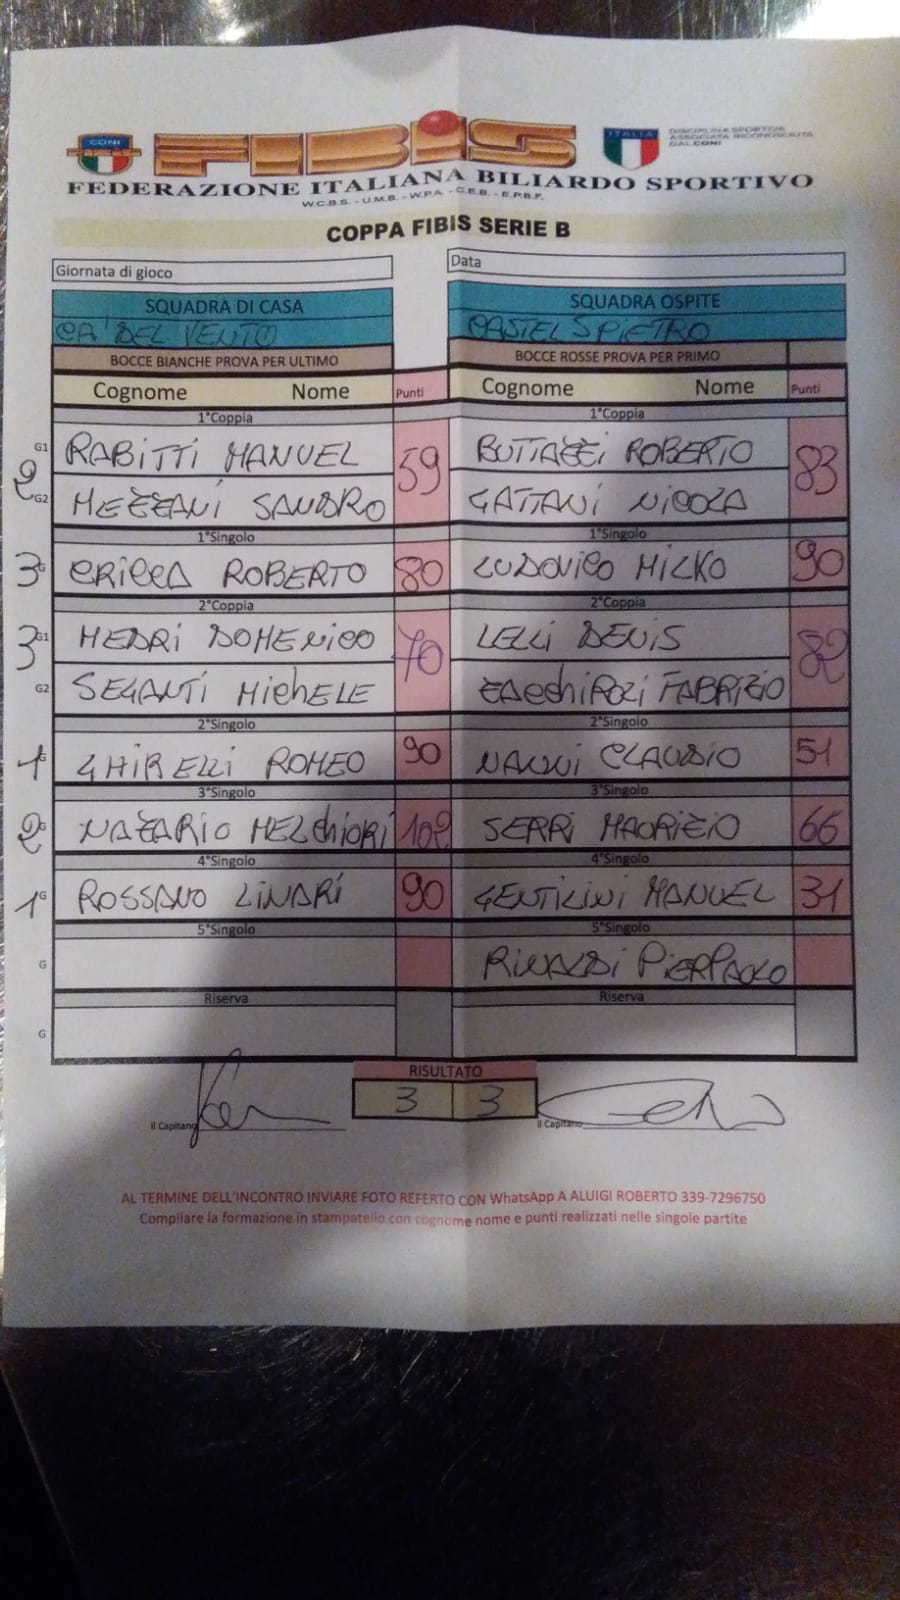 CONI
FIBIS
ITALIA
DISCIPLINA SPORTIVA
ASSOCIATA RICONOSCIUTA
DAL CONI
FEDERAZIONE ITALIANA BILIARDO SPORTIVO
W.C.B.S. - U.M.B. - W.P.A. - C.E.B. - E.P.B.F.
COPPA FIBIS SERIE B
Giornata di gioco Data
SQUADRA DI CASA SQUADRA OSPITE
CA' DEL VENTO CASTEL S PIETRO
BOCCE BIANCHE PROVA PER ULTIMO BOCCE ROSSE PROVA PER PRIMO
Cognome Nome Punti Cognome Nome Punti
1°Coppia 1°Coppia
G1 RABITTI MANUEL 59 BUTTAZZI ROBERTO 83
2 G2 MEZZANI SANDRO GATTANI NICOLA
1°Singolo 1°Singolo
3 G ROBERTO 80 LUDOVICO MILKO 90
2°Coppia 2°Coppia
3 G1 MEDRI DOMENICO 70 LELLI DENIS 82
G2 SEGANTI MICHELE ZACCHIROLI FABRIZIO
2°Singolo 2°Singolo
1 G GHIRELLI ROMEO 90 NANNI CLAUDIO 51
3°Singolo 3°Singolo
2 G NAZARIO MELCHIORI 102 SERRI MAURIZIO 66
4°Singolo 4°Singolo
1 G ROSSANO LINARI 90 GENTILINI MANUEL 31
5°Singolo 5°Singolo
G RINALDI PIERPAOLO
Riserva Riserva
G
RISULTATO
3 3
il Capitano il Capitano
AL TERMINE DELL'INCONTRO INVIARE FOTO REFERTO CON WhatsApp A ALUIGI ROBERTO 339-7296750
Compilare la formazione in stampatello con cognome nome e punti realizzati nelle singole partite